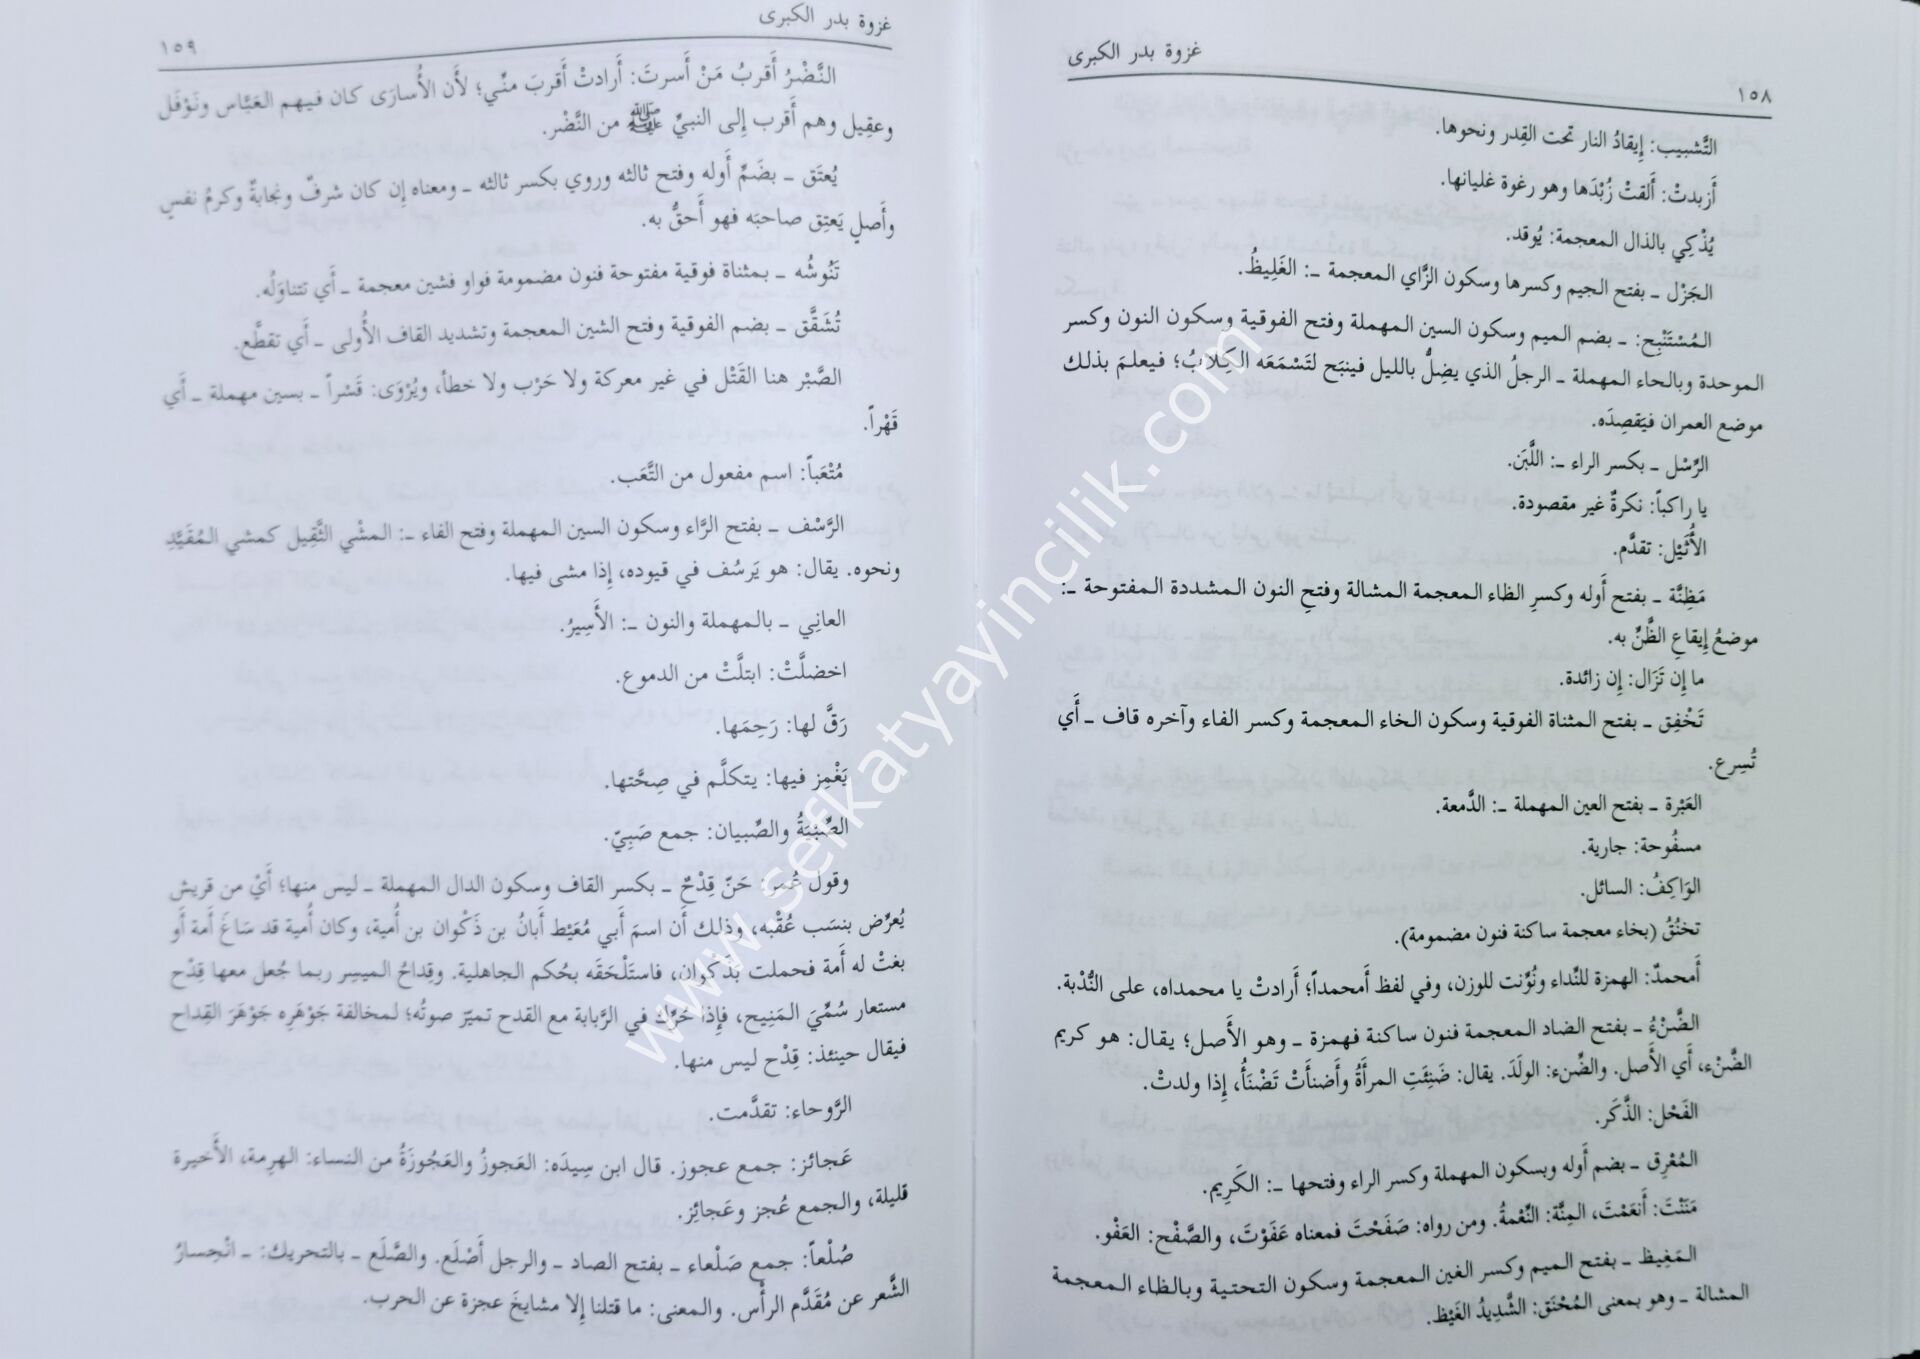 غزوة بدر الكبرى
١٥٨
التَّشبيب: إيقادُ النار تحت القِدر ونحوها.
أَزبدتْ: أَلقتْ زُبْدَها وهو رغوة غليانها.
يُذْكِي بالذال المعجمة: يُوقد.
الجَزْل ـ بفتح الجيم وكسرها وسكون الزَّاي المعجمة ـ: الغَلِيظُ.
المُسْتَنْبِح: ـ بضم الميم وسكون السين المهملة وفتح الفوقية وسكون النون وكسر
الموحدة وبالحاء المهملة ـ الرجلُ الذي يضِلُّ بالليل فينبَح لتَسْمَعَه الكِلابُ؛ فيعلمَ بذلك
موضع العمران فيَقصِدَه.
الرِّسْل ـ بكسر الراء ـ: اللَّبَن.
يا راكباً: نكرةٌ غير مقصودة.
الأُثَيْل: تقدَّم.
مَظِنَّة ـ بفتح أَوله وكسرِ الظاء المعجمة المشالة وفتحِ النون المشددة المفتوحة ـ:
موضعُ إيقاعِ الظَّنِّ به.
ما إن تَزَال: إن زائدة.
تَخْفِق ـ بفتح المثناة الفوقية وسكون الخاء المعجمة وكسر الفاء وآخره قاف ـ أَي
تُسِرع.
العَبْرة ـ بفتح العين المهملة ـ: الدَّمعة.
مسفُوحة: جارية.
الوَاكِفُ: السائل.
تخنُقُ (بخاء معجمة ساكنة فنون مضمومة).
أَمحمدٌ: الهمزة للنِّداء ونُوِّنت للوزن، وفي لفظ أَمحمداً؛ أَرادتْ يا محمداه، على النُّدْبة.
الضَّنْءُ ـ بفتح الضاد المعجمة فنون ساكنة فهمزة ـ وهو الأَصل؛ يقال: هو كريم
الضَّنْء، أَي الأَصل. والضِّنء: الولَدَ. يقال: ضَنِئَتِ المرأَةُ وأَضنأَتْ تَضْنَأُ، إِذا ولدتْ.
الفَحْل: الذَّكَر.
المُعْرِق ـ بضم أَوله وبسكون المهملة وكسر الراء وفتحها ـ: الكَرِيم.
مَنَنْتَ: أَنعَمْتَ، المِنَّة: النِّعْمةُ. ومن رواه: صَفَحْتَ فمعناه عَفَوْتَ، والصَّفْح: العَفْو.
المَغِيظ ـ بفتح الميم وكسر الغين المعجمة وسكون التحتية وبالظاء المعجمة
المشالة ـ وهو بمعنى المُحْنَق: الشَّدِيدُ الغَيْظ.
غزوة بدر الكبرى
١٥٩
النَّضْرُ أَقربُ مَنْ أَسرتَ: أَرادتْ أَقربَ منِّي؛ لأَن الأُسارَى كان فيهم العَبَّاس ونَوْفَل
وعقِيل وهم أَقرب إلى النبيِّ ﷺ من النَّضْر.
يُعتَق ـ بضَمِّ أَوله وفتح ثالثه وروي بكسر ثالثه ـ ومعناه إن كان شرفٌ ونجابةٌ وكرمُ نفسٍ
وأَصلٍ يَعتِق صاحبَه فهو أَحقُّ به.
تَنُوشُه ـ بمثناة فوقية مفتوحة فنون مضمومة فواو فشين معجمة ـ أَي تتناوَلُه.
تُشَقَّق ـ بضم الفوقية وفتح الشين المعجمة وتشديد القاف الأُولى ـ أَي تقطَّع.
الصَّبْر هنا القَتْل في غير معركة ولا حَرْب ولا خطأ، ويُرْوَى: قَسْراً ـ بسين مهملة ـ أَي
قَهْراً.
مُتْعَباً: اسم مفعول من التَّعَب.
الرَّسْف ـ بفتح الرَّاء وسكون السين المهملة وفتح الفاء ـ: المشْي الثَّقِيل كمشي المُقَيَّدِ
ونحوه. يقال: هو يَرسُف في قيوده، إذا مشى فيها.
العانِي ـ بالمهملة والنون ـ: الأَسِيرُ.
اخضلَّتْ: ابتلَّتْ من الدموع.
رَقَّ لها: رَحِمَها.
يَغْمِز فيها: يتكلَّم في صِحَّتها.
الصِّبْيَةُ والصِّبيان: جمع صَبِيّ.
وقول عُمر: حَنّ قِدْحٌ ـ بكسر القاف وسكون الدال المهملة ـ ليس منها؛ أَيْ من قريش
يُعرِّض بنسَب عُقْبه، وذلك أَن اسمَ أَبي مُعَيْط أَبانُ بن ذَكْوان بن أُمية، وكان أُمية قد سَاغَ أَمة أَو
بغتْ له أَمة فحملت بذكْوان، فاستَلْحَقَه بحُكم الجاهلية. وقِداحُ الميسِر ربما جُعل معها قِدْح
مستعار سُمِّيَ المَنِيح، فإذا حُرِّك في الرَّبابة مع القدح تميّز صوتُه؛ لمخالفة جَوْهَرِه جَوْهَرَ القِداح
فيقال حينئذ: قِدْح ليس منها.
الرَّوحاء: تقدَّمت.
عَجائز: جمع عجوز. قال ابن سِيدَه: العَجوزُ والعَجُوزَةُ من النساء: الهرِمة، الأَخيرة
قليلة، والجمع عُجز وعَجائِز.
صُلْعاً: جمع صَلْعاء ـ بفتح الصاد ـ والرجل أَصْلَع. والصَّلَع ـ بالتحريك: ـ انْحِسارُ
الشَّعر عن مُقَدَّم الرأْس. والمعنى: ما قتلنا إلا مشايخَ عجزة عن الحرب.
www.sefkatyayincilik.com